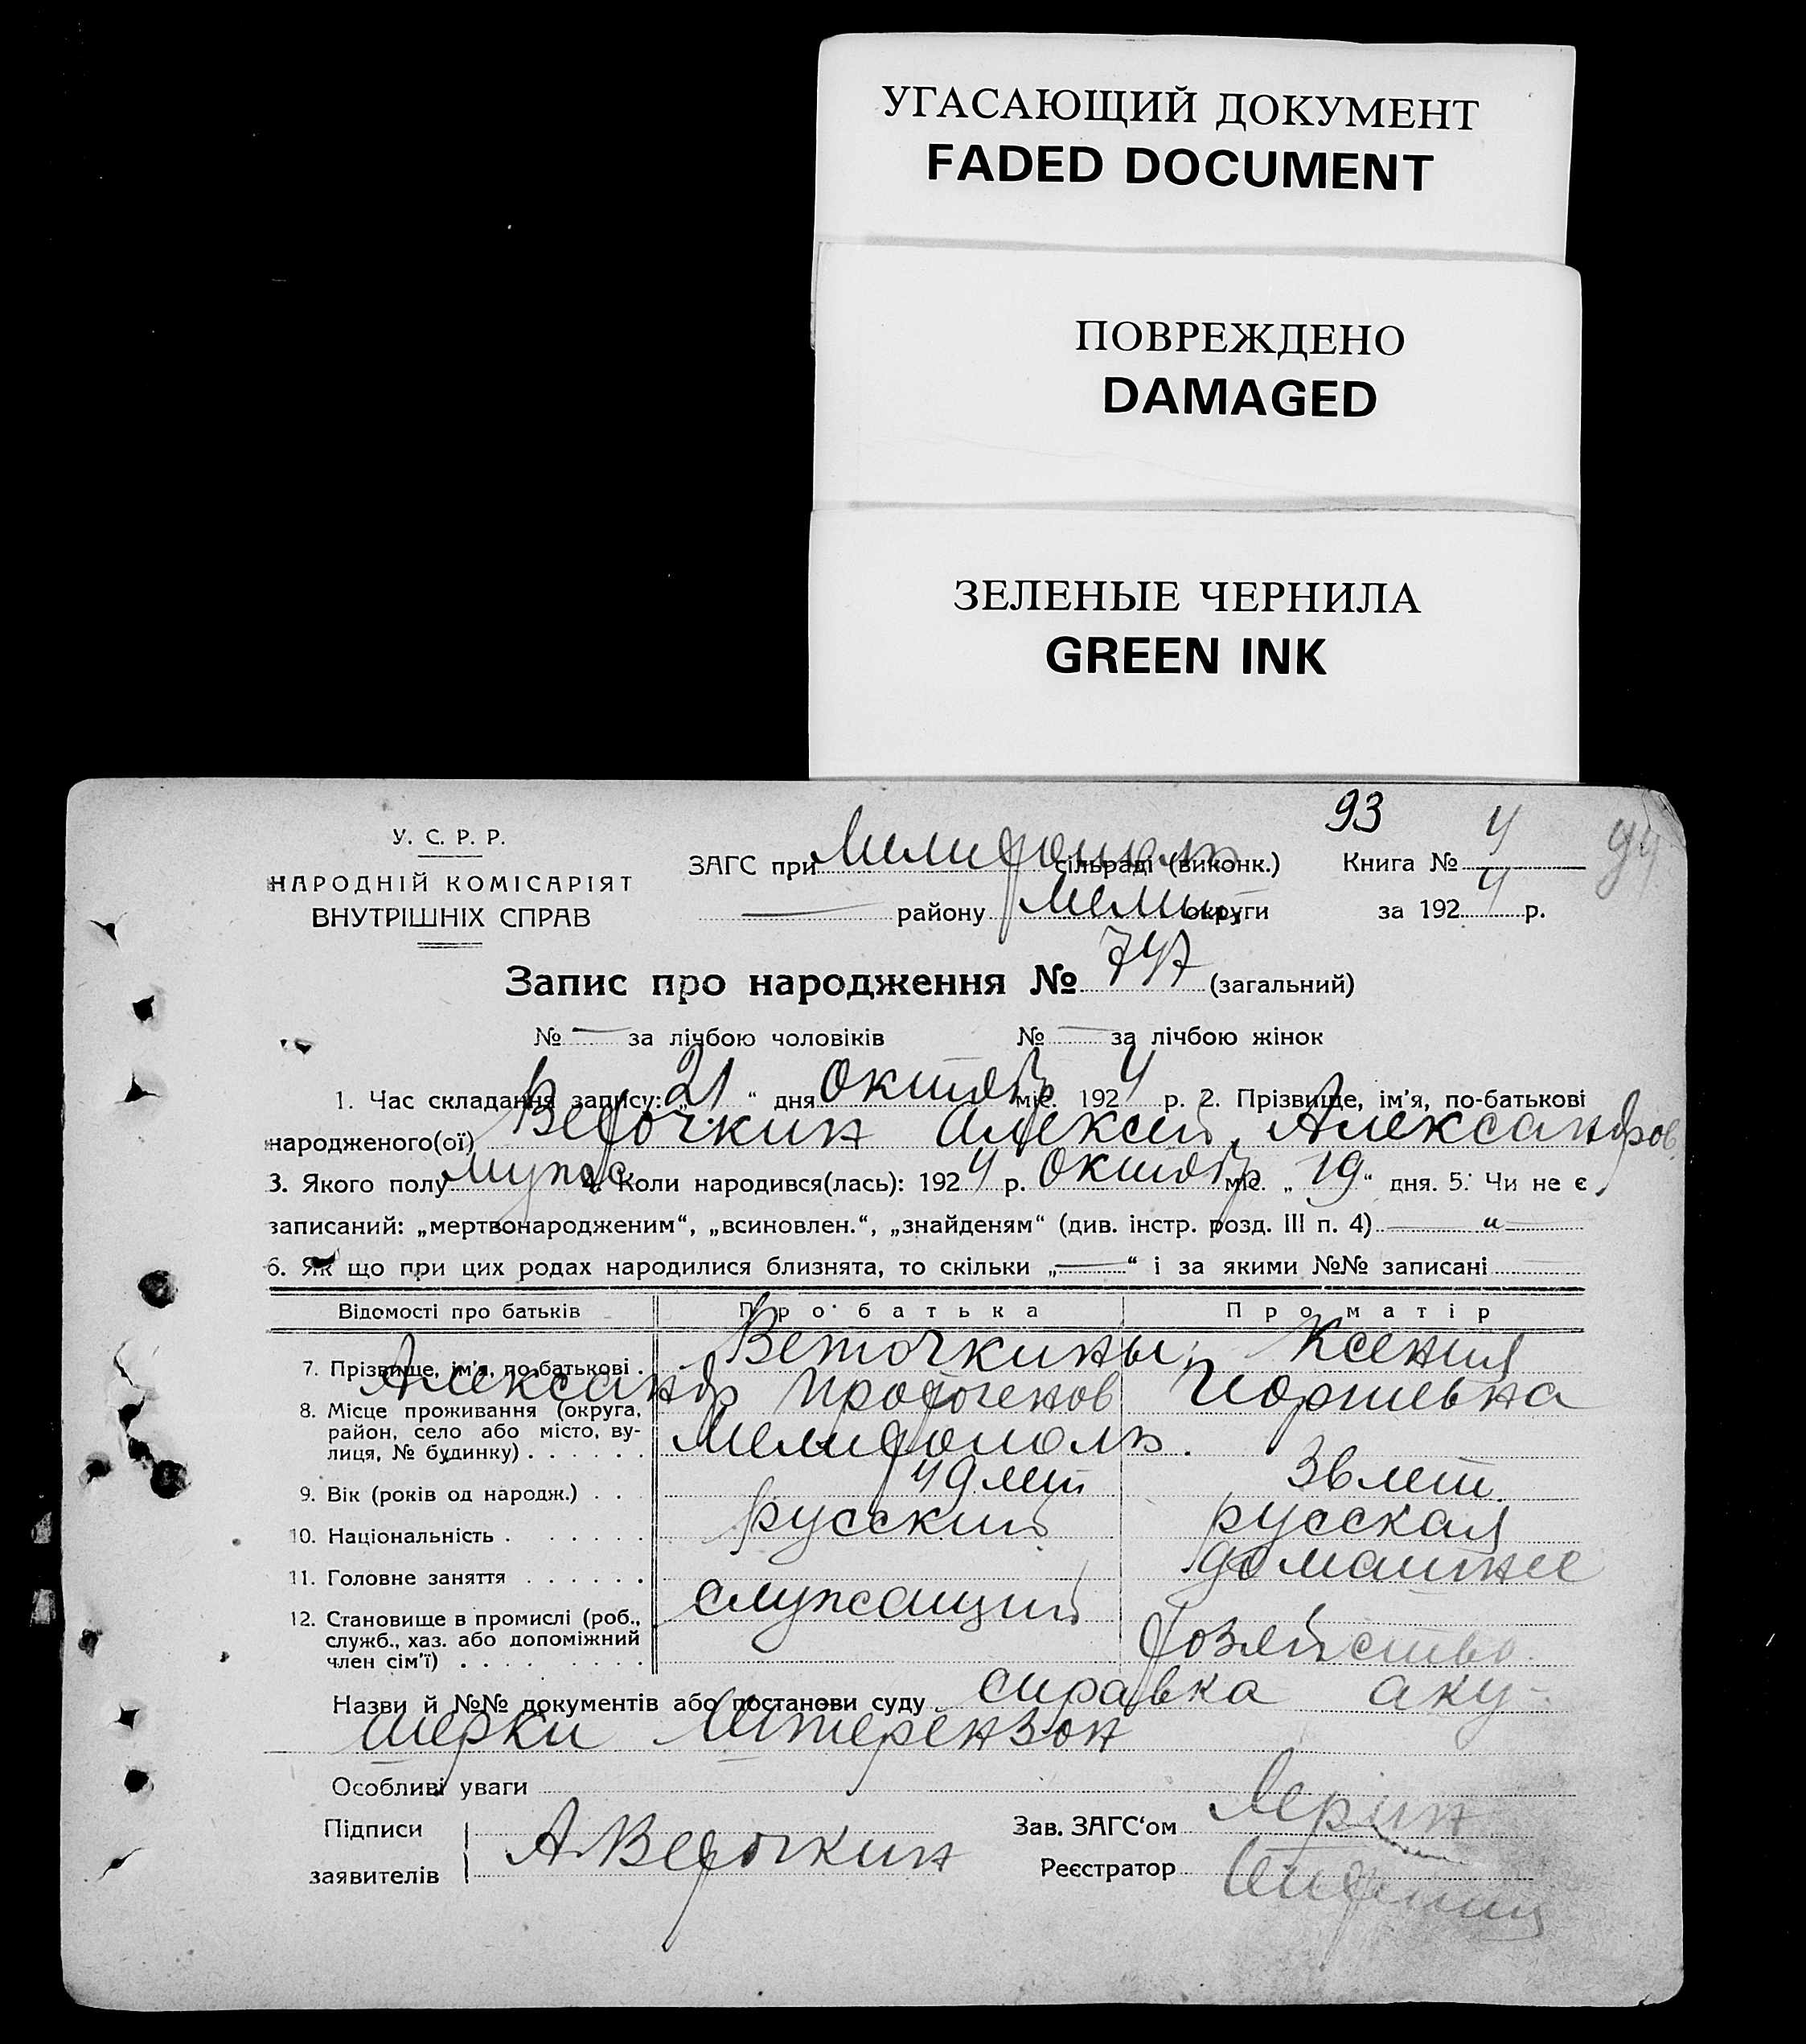 УГАСАЮЩИЙ ДОКУМЕНТ
FADED DOCUMENT
ПОВРЕЖДЕНО
DAMAGED
ЗЕЛЕНЫЕ ЧЕРНИЛА
GREEN INK
93
У. С. Р. Р.
НАРОДНІЙ КОМІСАРІЯТ
ВНУТРІШНІХ СПРАВ
ЗАГС при Мелитополь сільраді (виконк.) Книга № 4
— району Мелит. округи за 1924 р.
Запис про народження № 747 (загальний)
№ — за лічбою чоловіків № — за лічбою жінок
1. Час складання запису: „21“ дня октябр міс. 1924 р. 2. Прізвище, ім'я, по-батькові
народженого(ої) Веточкин Алексей Александров.
3. Якого полу мужс. 4. Коли народився(лась): 1924 р. октябр міс. „19“ дня. 5. Чи не є
записаний: „мертвонародженим“, „всиновлен.“, „знайденям“ (див. інстр. розд. III п. 4) — „ —
6. Як що при цих родах народилися близнята, то скільки „—“ і за якими №№ записані
Відомості про батьків Про батька Про матір
7. Прізвище, ім'я, по-батькові Веточкины: Ксения
Александр Георгиевна
8. Місце проживання (округа,
район, село або місто, ву-
лиця, № будинку) Мелитополь.
9. Вік (років од народж.) 49 лет 36 лет.
10. Національність русский русская
11. Головне заняття домашнее
12. Становище в промислі (роб.,
служб., хаз. або допоміжний
член сім'ї) служащий хозяйство.
Назви й №№ документів або постанови суду справка аку-
шерки Штерензон
Особливі уваги
Підписи
заявителів А Веточкин
Зав. ЗАГС'ом
Реєстратор